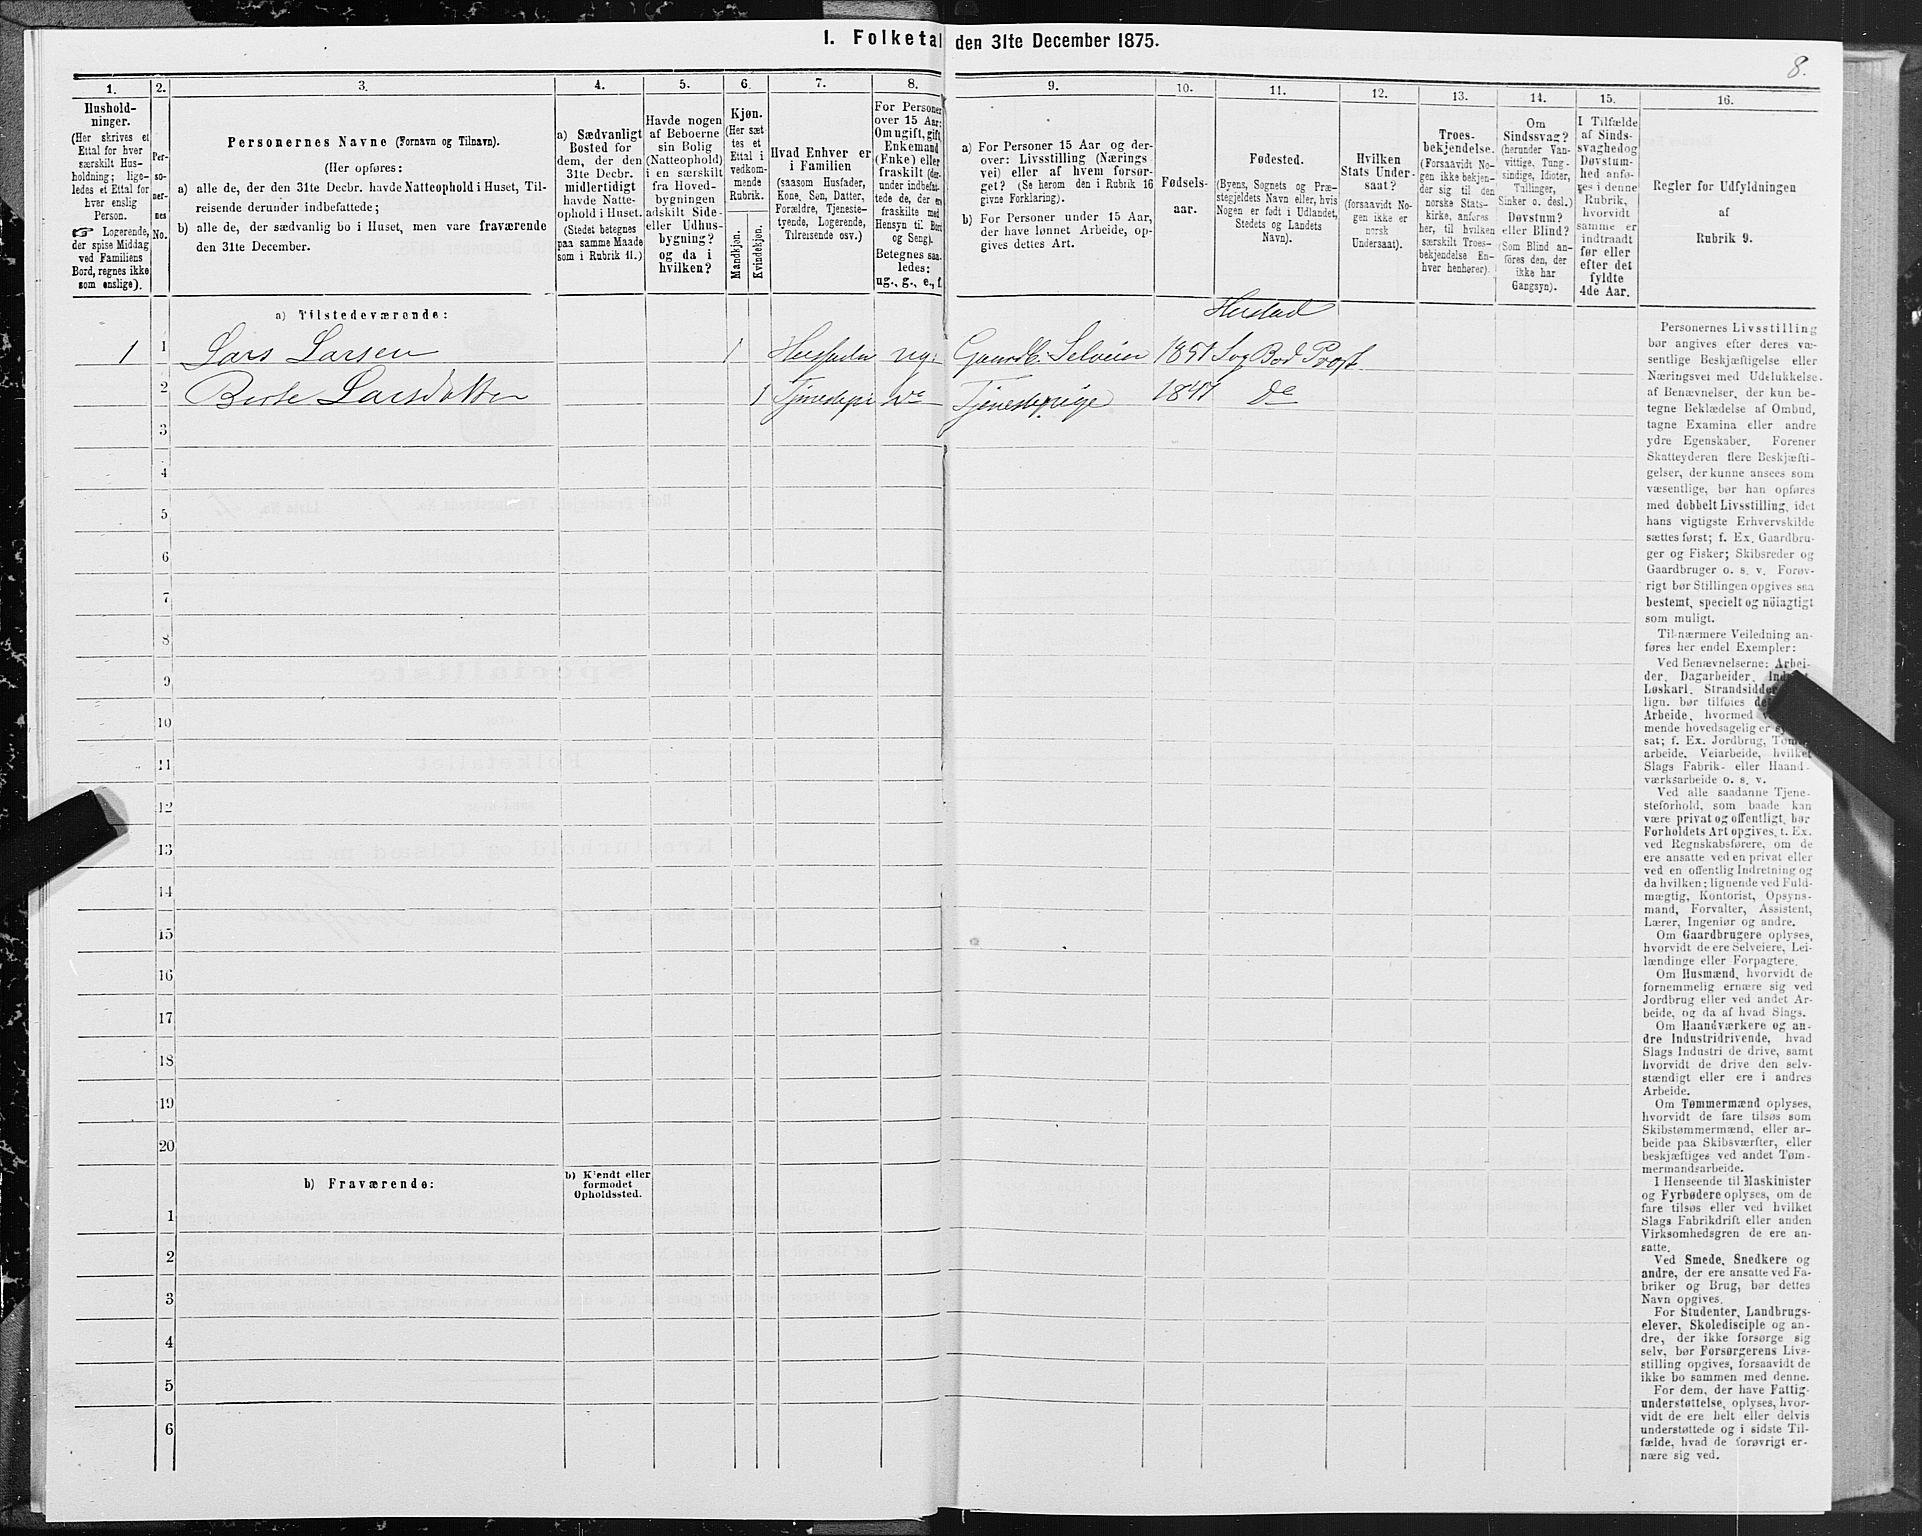 I. Folketal den 31te December 1875.
8.
1.
Hushold-
ninger.
(Her skrives et
Ettal for hver
særskilt Hus-
holdning; lige-
ledes et Ettal for
hver enslig
Person.
☞ Logerende,
der spise Middag
ved Familiens
Bord, regnes ikke
som enslige).
2.
Per-
so-
ner-
nes
No.
3.
Personernes Navne (Fornavn og Tilnavn).
(Her opføres:
a) alle de, der den 31te Decbr. havde Natteophold i Huset, Til-
reisende derunder indbefattede;
b) alle de, der sædvanlig bo i Huset, men vare fraværende
den 31te December.
4.
a) Sædvanligt
Bosted for
dem, der den
31te Decbr.
midlertidigt
havde Natte-
ophold i Huset.
(Stedet betegnes
paa samme Maade
som i Rubrik 11.)
5.
Havde nogen
af Beboerne
sin Bolig
(Natteophold)
i en særskilt
fra Hoved-
bygningen
adskilt Side-
eller Udhus-
bygning?
og da i
hvilken?
6.
Kjøn.
(Her sæt-
tes et
Ettal i
vedkom-
mende
Rubrik.
Mandkjøn.
Kvindekjøn.
7.
Hvad Enhver er
i Familien
(saasom Husfader,
Kone, Søn, Datter,
Forældre, Tjeneste-
tyende, Logerende,
Tilreisende osv.)
8.
For Personer
over 15 Aar:
Om ugift, gift,
Enkemand
(Enke) eller
fraskilt (der-
under indbefat-
tede de, der er
fraskilte med
Hensyn til Bord
og Seng).
Betegnes saa-
ledes:
ug., g., e., f.
9.
a) For Personer 15 Aar og der-
over: Livsstilling (Nærings
vei) eller af hvem forsør-
get? (Se herom den i Rubrik 16
givne Forklaring).
b) For Personer under 15 Aar,
der have lønnet Arbeide, op-
gives dettes Art.
10.
Fødsels-
aar.
11.
Fødested.
(Byens, Sognets og Præ-
stegjeldets Navn eller, hvis
Nogen er født i Udlandet,
Stedets og Landets
Navn).
12.
Hvilken
Stats Under-
saat?
(forsaavidt No-
gen ikke er
norsk
Undersaat).
13.
Troes-
bekjendelse.
(Forsaavidt No-
gen ikke bekjen-
der sig til den
norske Stats-
kirke, anføres
her, til hvilken
særskilt Troes-
bekjendelse En-
hver henhører).
14.
Om
Sindssvag?
(herunder Van-
vittige, Tung-
sindige, Idioter,
Tullinger,
Sinker o. desl.)
Døvstum?
eller Blind?
(Som Blind an-
føres den, der
ikke har
Gangsyn).
15.
I Tilfælde
af Sinds-
svaghed og
Døvstum-
hed anfø-
res i denne
Rubrik,
hvorvidt
samme er
indtraadt
før eller
efter det
fyldte
4de Aar.
16.
Regler for Udfyldningen
af
Rubrik 9.
a) Tilstedeværende:
1 1 Lars Larsen 1 Husfader ug. Gaardb. Selveier 1851 Sog Bod Præst
2 Berte Larsdatter 1 Tjenestepi do Tjenestepige 1847 do
3
4
5
6
7
8
9
10
11
12
13
14
15
16
17
18
19
20
b) Fraværende:
b) Kjendt eller
formodet
Opholdssted.
1
2
3
4
5
6
Personernes Livsstilling
bør angives efter deres væ-
sentlige Beskjæftigelse eller
Næringsvei med Udelukkelse
af Benævnelser, der kun be-
tegne Beklædelse af Ombud,
tagne Examina eller andre
ydre Egenskaber. Forener
Skatteyderen flere Beskjæfti-
gelser, der kunne ansees som
væsentlige, bør han opføres
med dobbelt Livsstilling, idet
hans vigtigste Erhvervskilde
sættes først; f. Ex. Gaardbru-
ger og Fisker; Skibsreder og
Gaardbruger o. s. v. Forøv-
rigt bør Stillingen opgives saa
bestemt, specielt og nöiagtigt
som muligt.
Til nærmere Veiledning an-
føres her endel Exempler:
Ved Benævnelserne: Arbei-
der, Dagarbeider,
Løskarl, Strandsidder
lign. bør tilføies
Arbeide, hvormed
mende hovedsagelig er
sat; f. Ex. Jordbrug,
arbeide, Veiarbeide, hvilket
Slags Fabrik- eller Haand-
værksarbeide o. s. v.
Ved alle saadanne Tjene-
steforhold, som baade kan
være privat og offentligt, bør
Forholdets Art opgives, t. Ex.
ved Regnskabsførere, om de
ere ansatte ved en privat eller
ved en offentlig Indretning og
da hvilken; lignende ved Fuld-
mægtig, Kontorist, Opsyns-
mand, Forvalter, Assistent,
Lærer, Ingeniør og andre.
Om Gaardbrugere oplyses,
hvorvidt de ere Selveiere, Lei-
lændinge eller Forpagtere.
Om Husmænd, hvorvidt de
fornemmelig ernære sig ved
Jordbrug eller ved andet Ar-
beide, og da af hvad Slags.
Om Haandværkere og an-
dre Industridrivende, hvad
Slags Industri de drive, samt
hvorvidt de drive den selv-
stændigt eller ere i andres
Arbeide.
Om Tømmermænd oplyses,
hvorvidt de fare tilsøs som
Skibstømmermænd, eller ar-
beide paa Skibsværfter, eller
beskjæftiges ved andet Tøm-
mermandsarbeide.
I Henseende til Maskinister
og Fyrbødere oplyses, om de
fare tilsøs eller ved hvilket
Slags Fabrikdrift eller anden
Virksomhedsgren de ere an-
satte.
Ved Smede, Snedkere og
andre, der ere ansatte ved Fa-
briker og Brug, bør dettes
Navn opgives.
For Studenter, Landbrugs-
elever, Skoledisciple og an-
dre, der ikke forsørge sig
selv, bør Forsørgerens Livs-
stilling opgives, forsaavidt de
ikke bo sammen med denne.
For dem, der have Fattig-
understøttelse, oplyses, hvor-
vidt de ere helt eller delvis
understøttede og i sidste Til-
fælde, hvad de forøvrigt er-
nære sig ved.